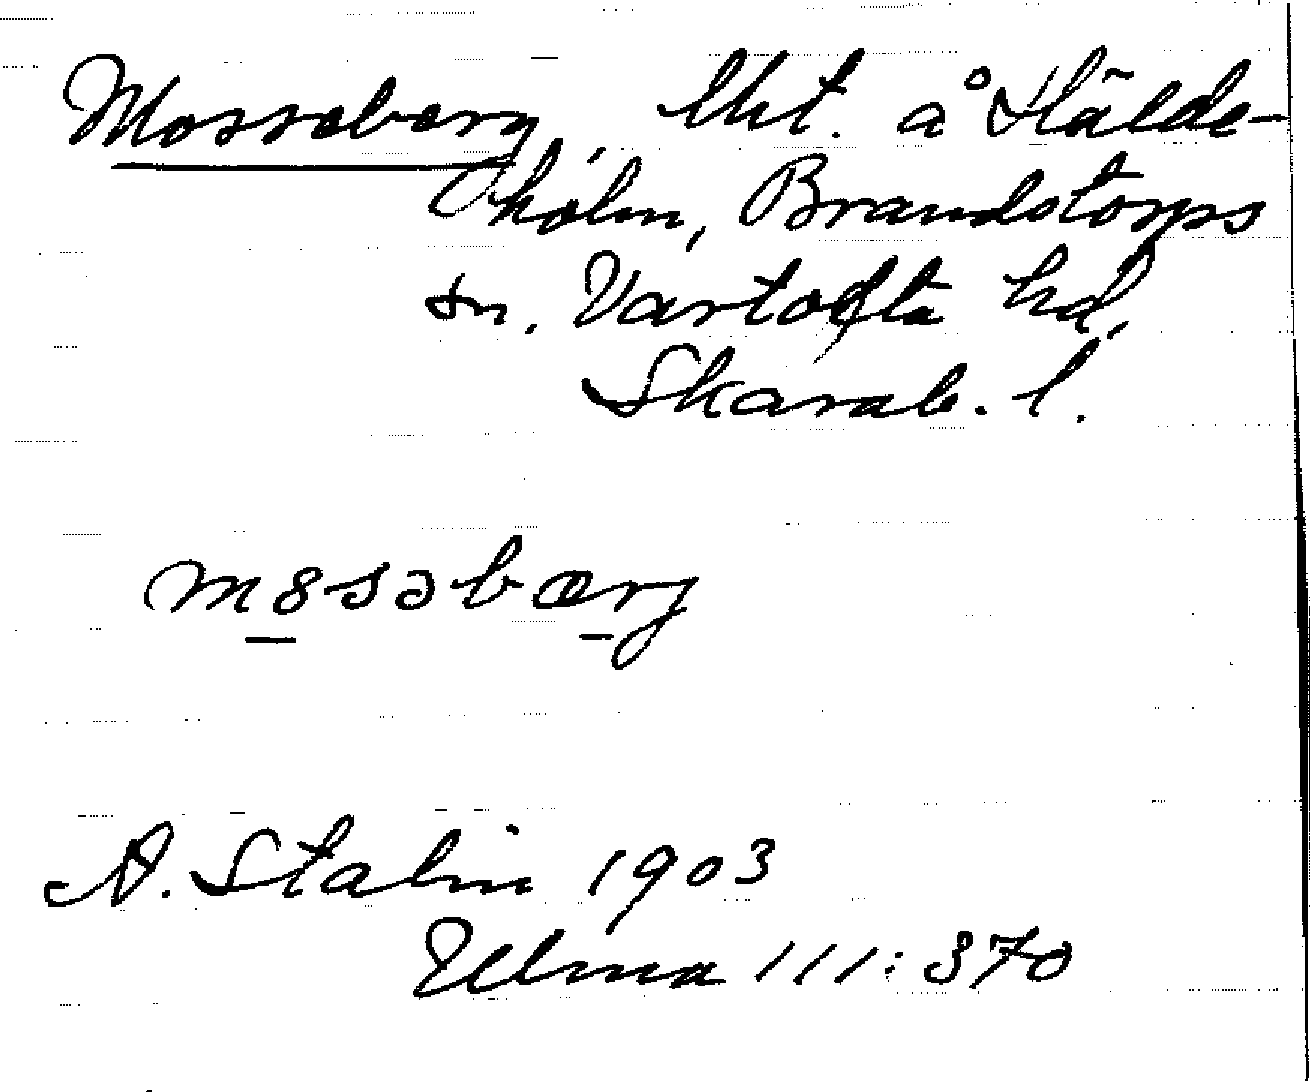 Mosseberg, lht. å Hälde-
holm, Brandstorps
sn. Vartofta hd,
Skarab. l.
m8səbærg
A. Stalin 1903
Ulma 111:370